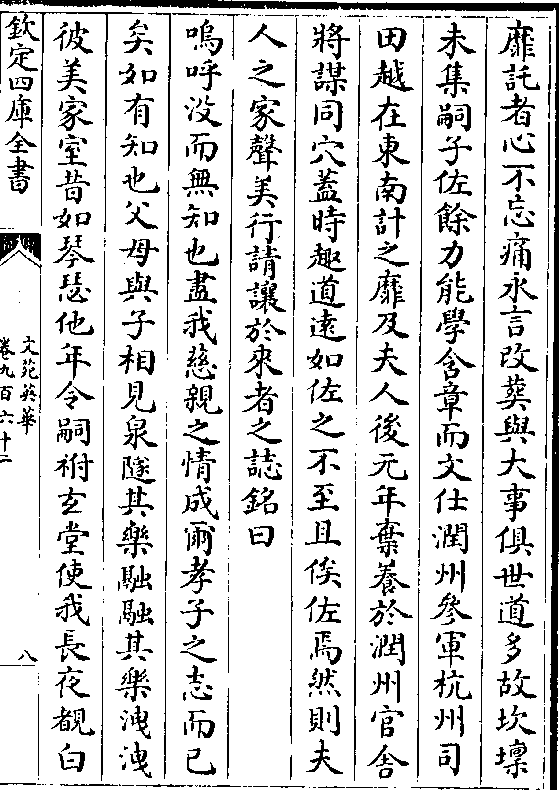 靡託者心不忘痛永言改葬與大事俱世道多故坎壈
未集嗣子佐餘力能學含章而文仕潤州參軍杭州司
田越在東南計之靡及夫人後元年棄養於潤州官舍
將謀同穴蓋時趣道遠如佐之不至且俟佐焉然則夫
人之家聲美行請讓於來者之誌銘曰
嗚呼没而無知也盡我慈親之情成爾孝子之志而已
矣如有知也父母與子相見泉隧其樂融融其樂洩洩
彼美家室昔如琴瑟他年令嗣祔玄堂使我長夜覩白
欽定四庫全書
文苑英華
卷九百六十二
八